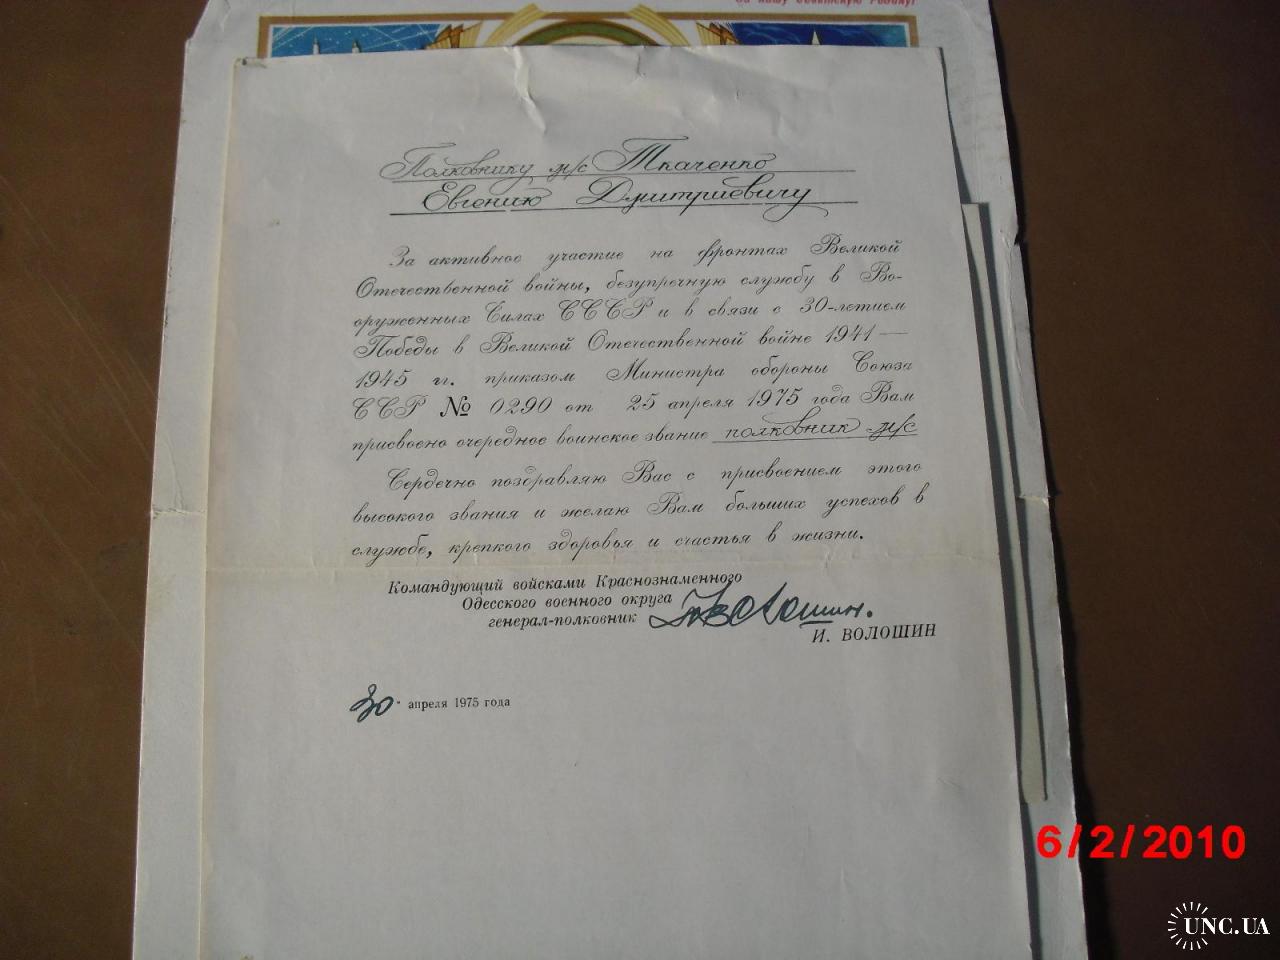 за нашу Советскую Родину!
Полковнику м/с Ткаченко
Евгению Дмитриевичу
За активное участие на фронтах Великой
Отечественной войны, безупречную службу в Во-
оруженных Силах СССР и в связи с 30-летием
Победы в Великой Отечественной войне 1941—
1945 гг. приказом Министра обороны Союза
ССР № 0290 от 25 апреля 1975 года Вам
присвоено очередное воинское звание полковник м/с
Сердечно поздравляю Вас с присвоением этого
высокого звания и желаю Вам больших успехов в
службе, крепкого здоровья и счастья в жизни.
Командующий войсками Краснознаменного
Одесского военного округа
генерал-полковник
Волошин.
И. ВОЛОШИН
30 апреля 1975 года
6/2/2010
UNC.UA